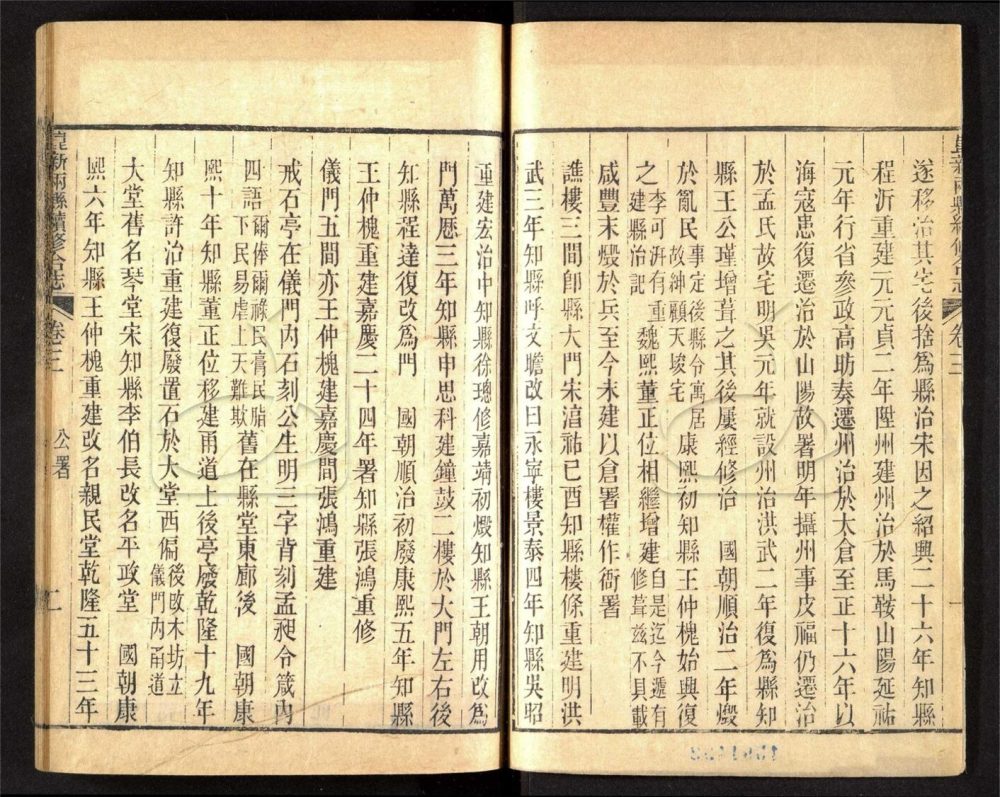 遂移治其宅後捨爲縣治宋因之紹興二十六年知縣
程沂重建元元貞二年陞州建州治於馬鞍山陽延祐
元年行省參政高昉奏遷州治於太倉至正十六年以
海寇患復遷治於山陽故署明年攝州事皮福仍遷治
於孟氏故宅明吳元年就設州治洪武二年復爲縣知
縣王公瑾增葺之其後屢經修治 國朝順治二年燬
於亂民事定後縣令寓居故紳顧天埈宅康熙初知縣王仲槐始興復
之李可汧有重建縣治記魏熙董正位相繼增建自是迄今遞有修葺茲不具載
咸豐末燬於兵至今未建以倉署權作衙署
譙樓三間卽縣大門宋淳祐己酉知縣樓條重建明洪
武三年知縣呼文瞻改曰永寧樓景泰四年知縣吳昭
重建宏治中知縣徐璁修嘉靖初燬知縣王朝用改爲
門萬厯三年知縣申思科建鐘鼓二樓於大門左右後
知縣程達復改爲門 國朝順治初廢康熙五年知縣
王仲槐重建嘉慶二十四年署知縣張鴻重修
儀門五間亦王仲槐建嘉慶間張鴻重建
戒石亭在儀門內石刻公生明三字背刻孟昶令箴內
四語爾俸爾祿民膏民脂下民易虐上天難欺舊在縣堂東廊後 國朝康
熙十年知縣董正位移建甬道上後亭廢乾隆十九年
知縣許治重建復廢置石於大堂西偏後改木坊立儀門內甬道
大堂舊名琴堂宋知縣李伯長改名平政堂 國朝康
熙六年知縣王仲槐重建改名親民堂乾隆五十三年
崑新兩縣續修合志 卷三 公署 二
崑新兩縣續修合志 卷三 一